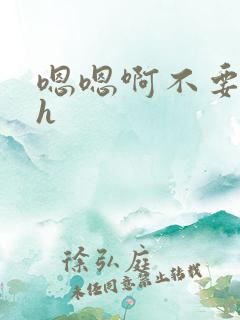 嗯嗯啊不要
h
徐弘庭
未经同意禁止转载